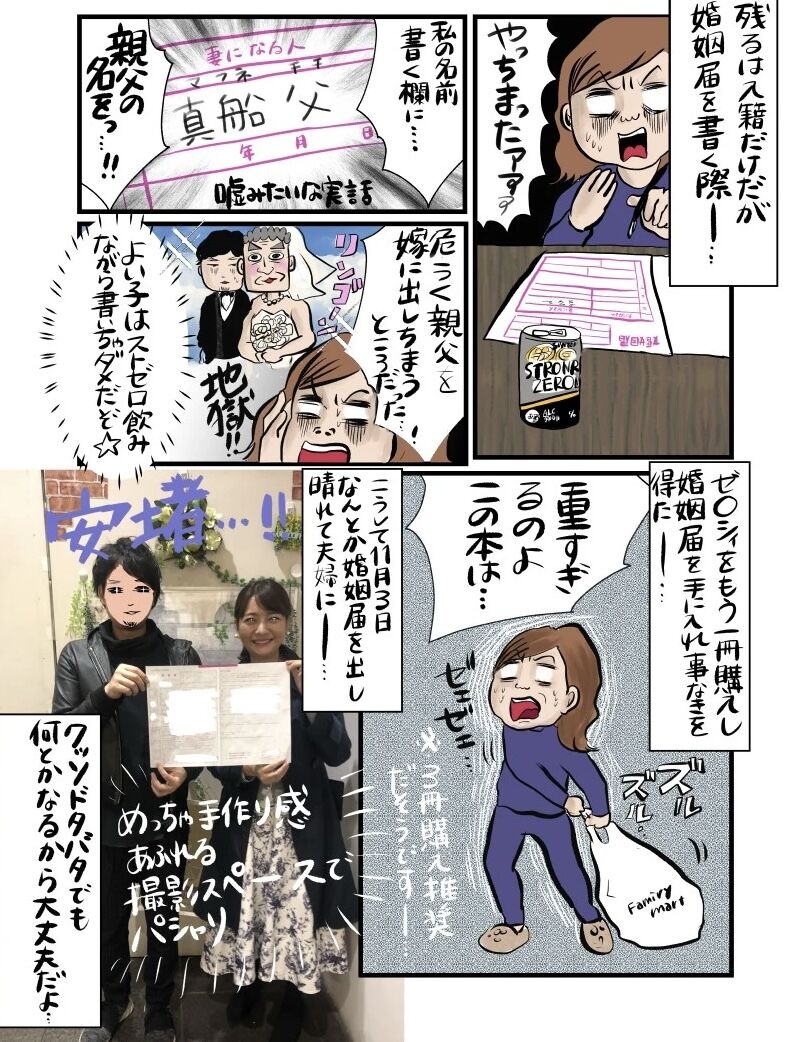 残るは入籍だけだが
婚姻届を書く際ー…
やっちまったァァァ
STRONG
ZERO
ALC.
私の名前
書く欄に…
妻になる人
マフネ チチ
真船 父
年 月 日
親父の
名をっ…!!
嘘みたいな実話
危うく親父を
嫁に出しちまう
ところだった…
リンゴーン
地獄!!
よい子はストゼロ飲み
ながら書いちゃダメだぞ☆
ゼ〇シィをもう一冊購入し
婚姻届を手に入れ事なきを
得たー…
重すぎ
るのよ
この本は…
ゼェ
ゼェ…
ズル
ズル…
Famiry
mart
※3冊購入推奨
だそうですー…
こうして11月3日
なんとか婚姻届を出し
晴れて夫婦にー…
安堵…!!
めっちゃ手作り感
あふれる
撮影スペースで
パシャリ
クッソドタバタでも
何とかなるから大丈夫だよ…